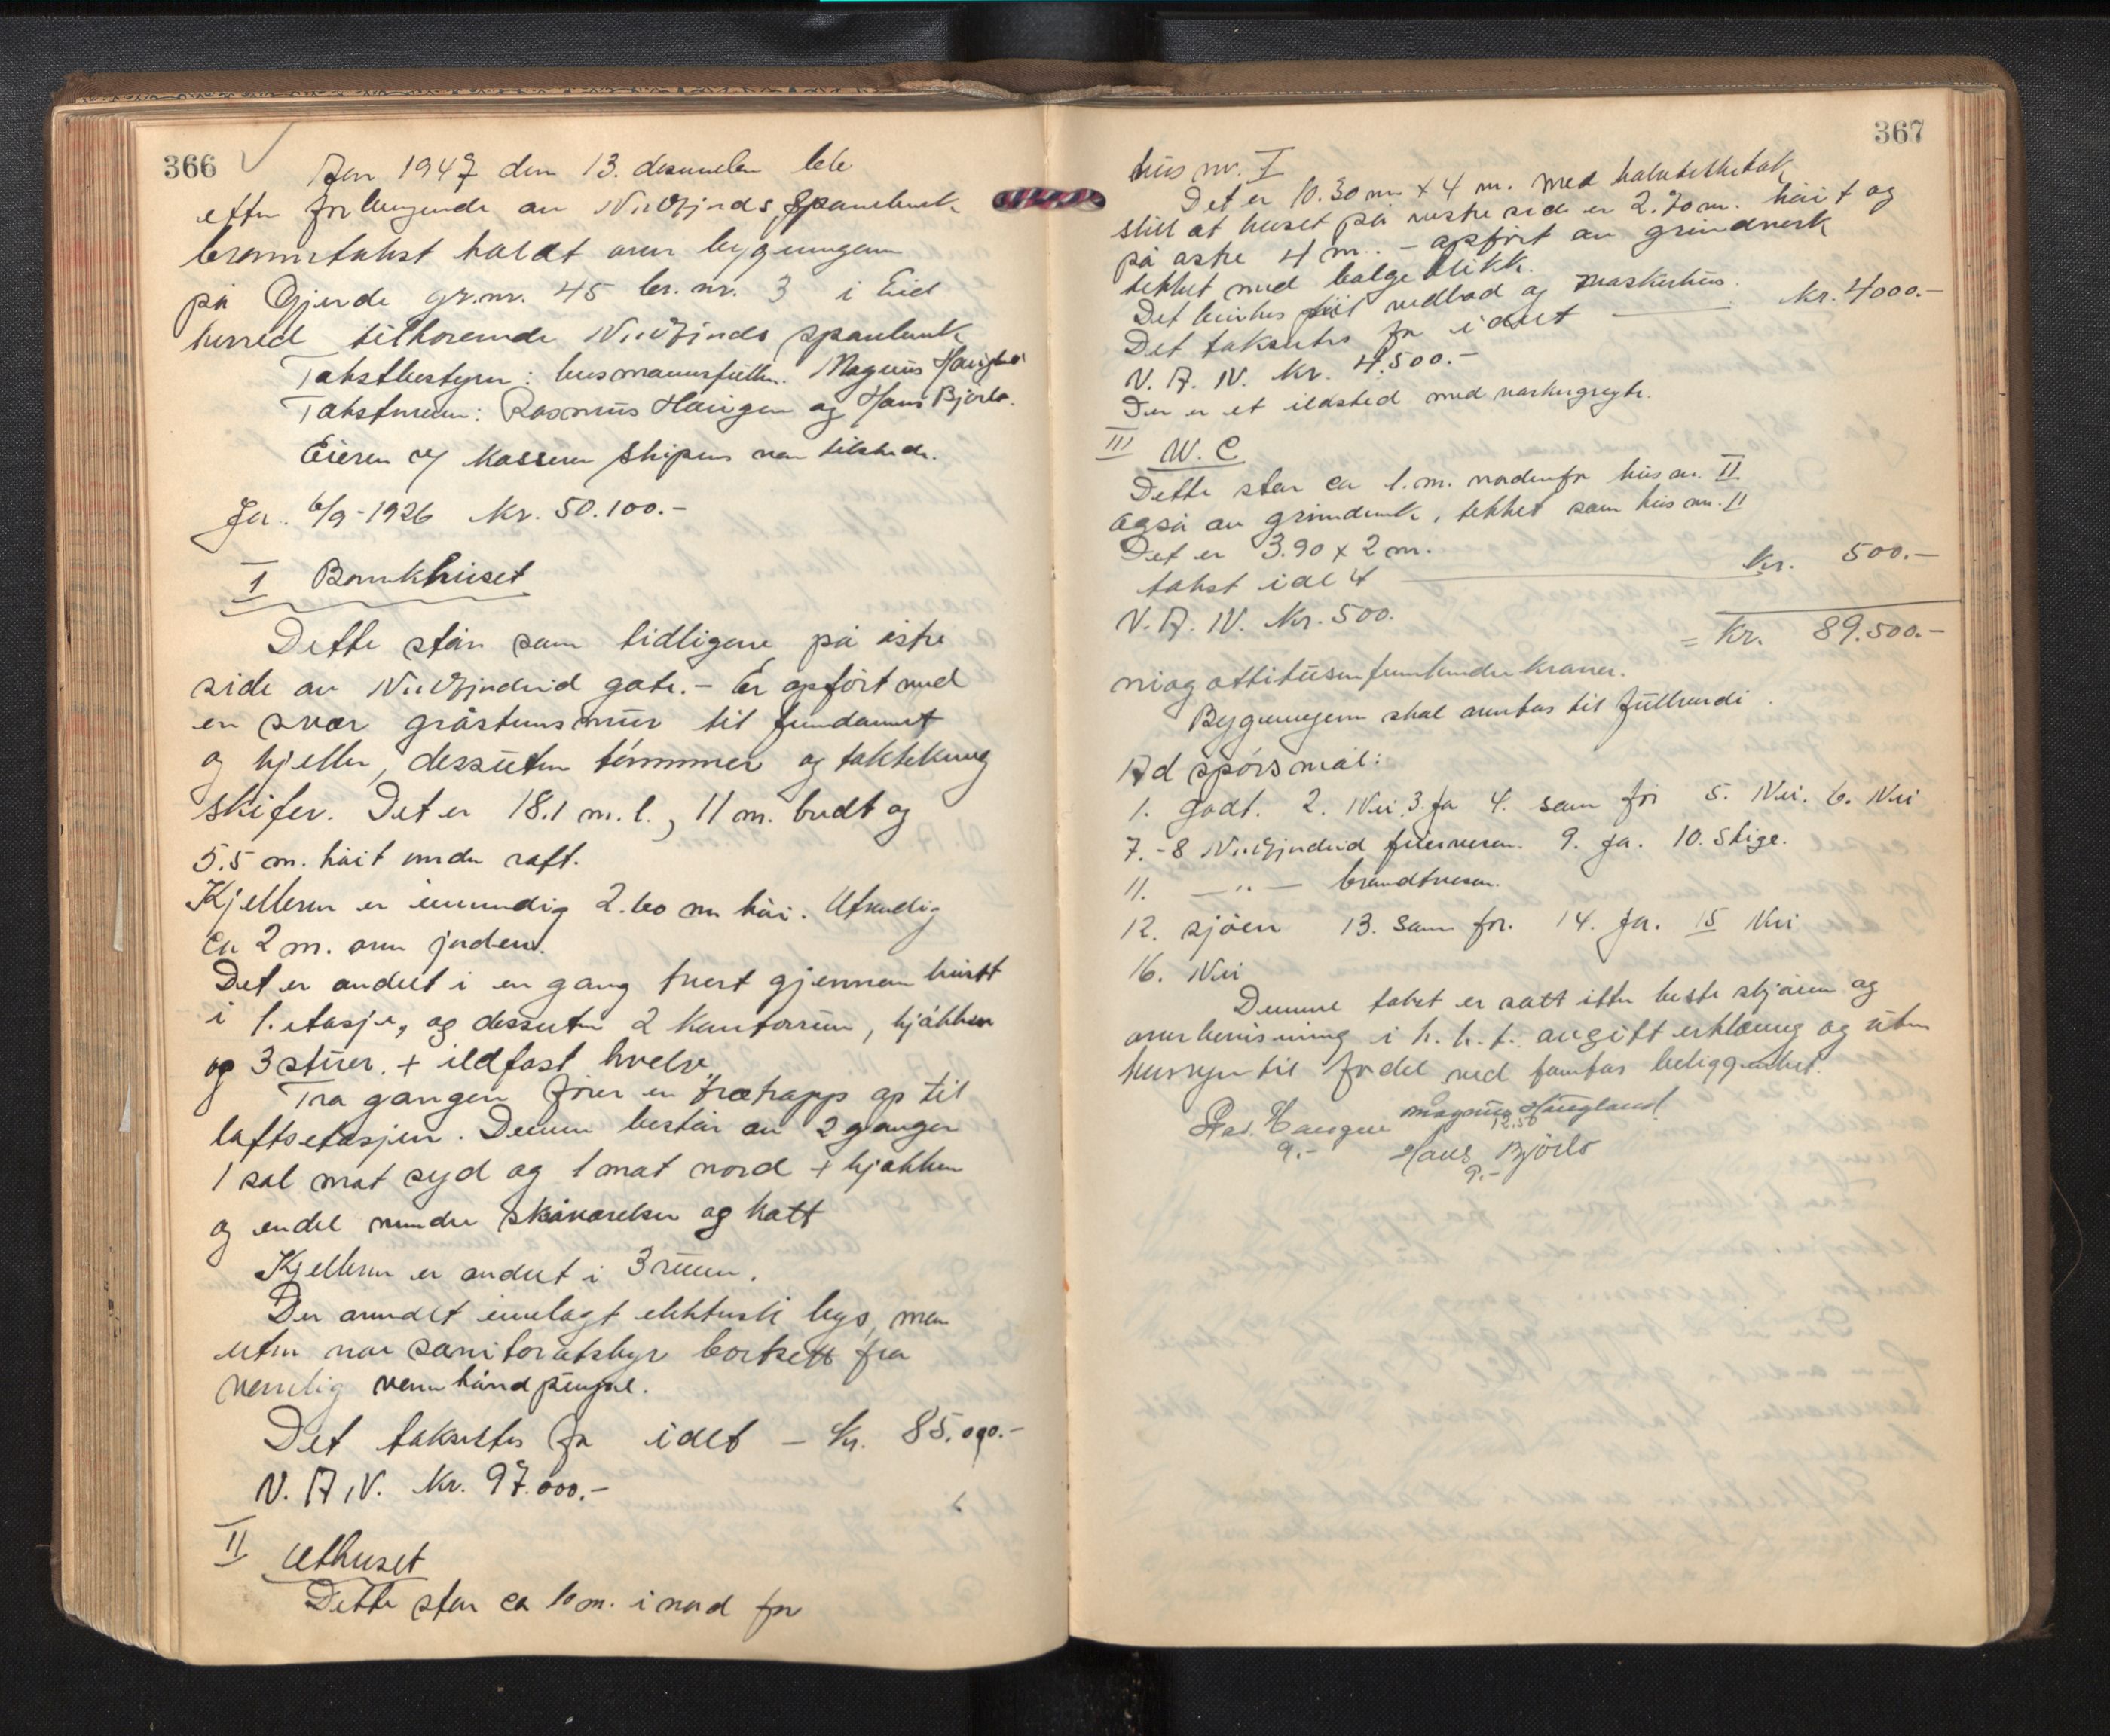 366
Aar 1947 den 13. desember ble
etter forlangende av Nordfjords Sparebank
branntakst holdt over bygningene
på Gjerde gr.nr. 45 br. nr. 3 i Eid
herred tilhørende Nordfjords sparebank
Takstbestyrer: lensmannsfullm. Magnus Haugland
Takstmenn: Rasmus Haugen og Hans Bjørlo.
Eieren v/ kasserer Skipenes var tilstede.
Ja. 6/9-1926 Kr. 50.100.-
I Bankhuset
Dette står som tidligere på østre
side av Nordfjordeid gate. - Er opført med
en svær gråstensmur til fundament
og kjeller, dessuten tømmer og taktekning
skifer. Det er 18.1 m. l., 11 m. bredt og
5.5 m. høit under raft.
Kjelleren er innvendig 2.60 m høi. Utvendig
ca 2 m. over jorden.
Det er avdelt i en gang tvert gjennem huset
i 1. etasje, og dessuten 2 kontorrum, kjøkken
og 3 stuer. + ildfast hvelv.
Fra gangen fører en trætrapp op til
loftsetasjen. Denne består av 2 ganger
1 sal mot syd og 1 mot nord + kjøkken
og endel mindre skåværelser og kott
Kjelleren er avdelt i 3 rum.
Der innlagt elektrisk lys, men
uten noe sanitøratstyr bortsett fra
vannlig vann håndpumpe.
Det takseres for idet - kr. 85.000.-
V. A. IV. Kr. 97.000.-
II Uthuset
Dette står ca 10 m. i nord for
367
hus nr. I
Det er 10.30 m x 4 m. med halvtekketak
slik at huset på vestre side er 2.70 m. høit og
på østre 4 m. - opført av grindverk
tekket med bølgeblikk.
Det brukes til vedbod og vaskerhus.
Det takseres for idet Kr. 4000.-
V. A. IV. Kr. 4.500.-
Der er et ildsted med
III W. C
Dette står ca 1. m. nordenfor hus nr. II
også av grindverk, tekket som hus nr. II
Det er 3.90 x 2 m.
takst idet kr. 500.-
V. A. IV. Kr. 500.
= Kr. 89.500.-
niogottitusenfemhundre kroner.
Bygningene skal anntas til fullverdi.
Ad spørsmål:
1. godt. 2. Nei. 3. Ja 4. som før 5. Nei. 6. Nei
7. - 8 Nordfjordeid 9. Ja. 10. Stige.
11. - " - brandtvesen.
12. sjøen 13. som før. 14. Ja. 15 Nei
16. Nei
Denne takst er satt etter beste skjønn og
overbevisning i h. h. t. avgitt erklæring og uten
hensyn til fordel ved tomtas beliggenhet.
Ras. Haugen Magnus Haugland
9.- 12.50
Hans Bjørlo
9.-